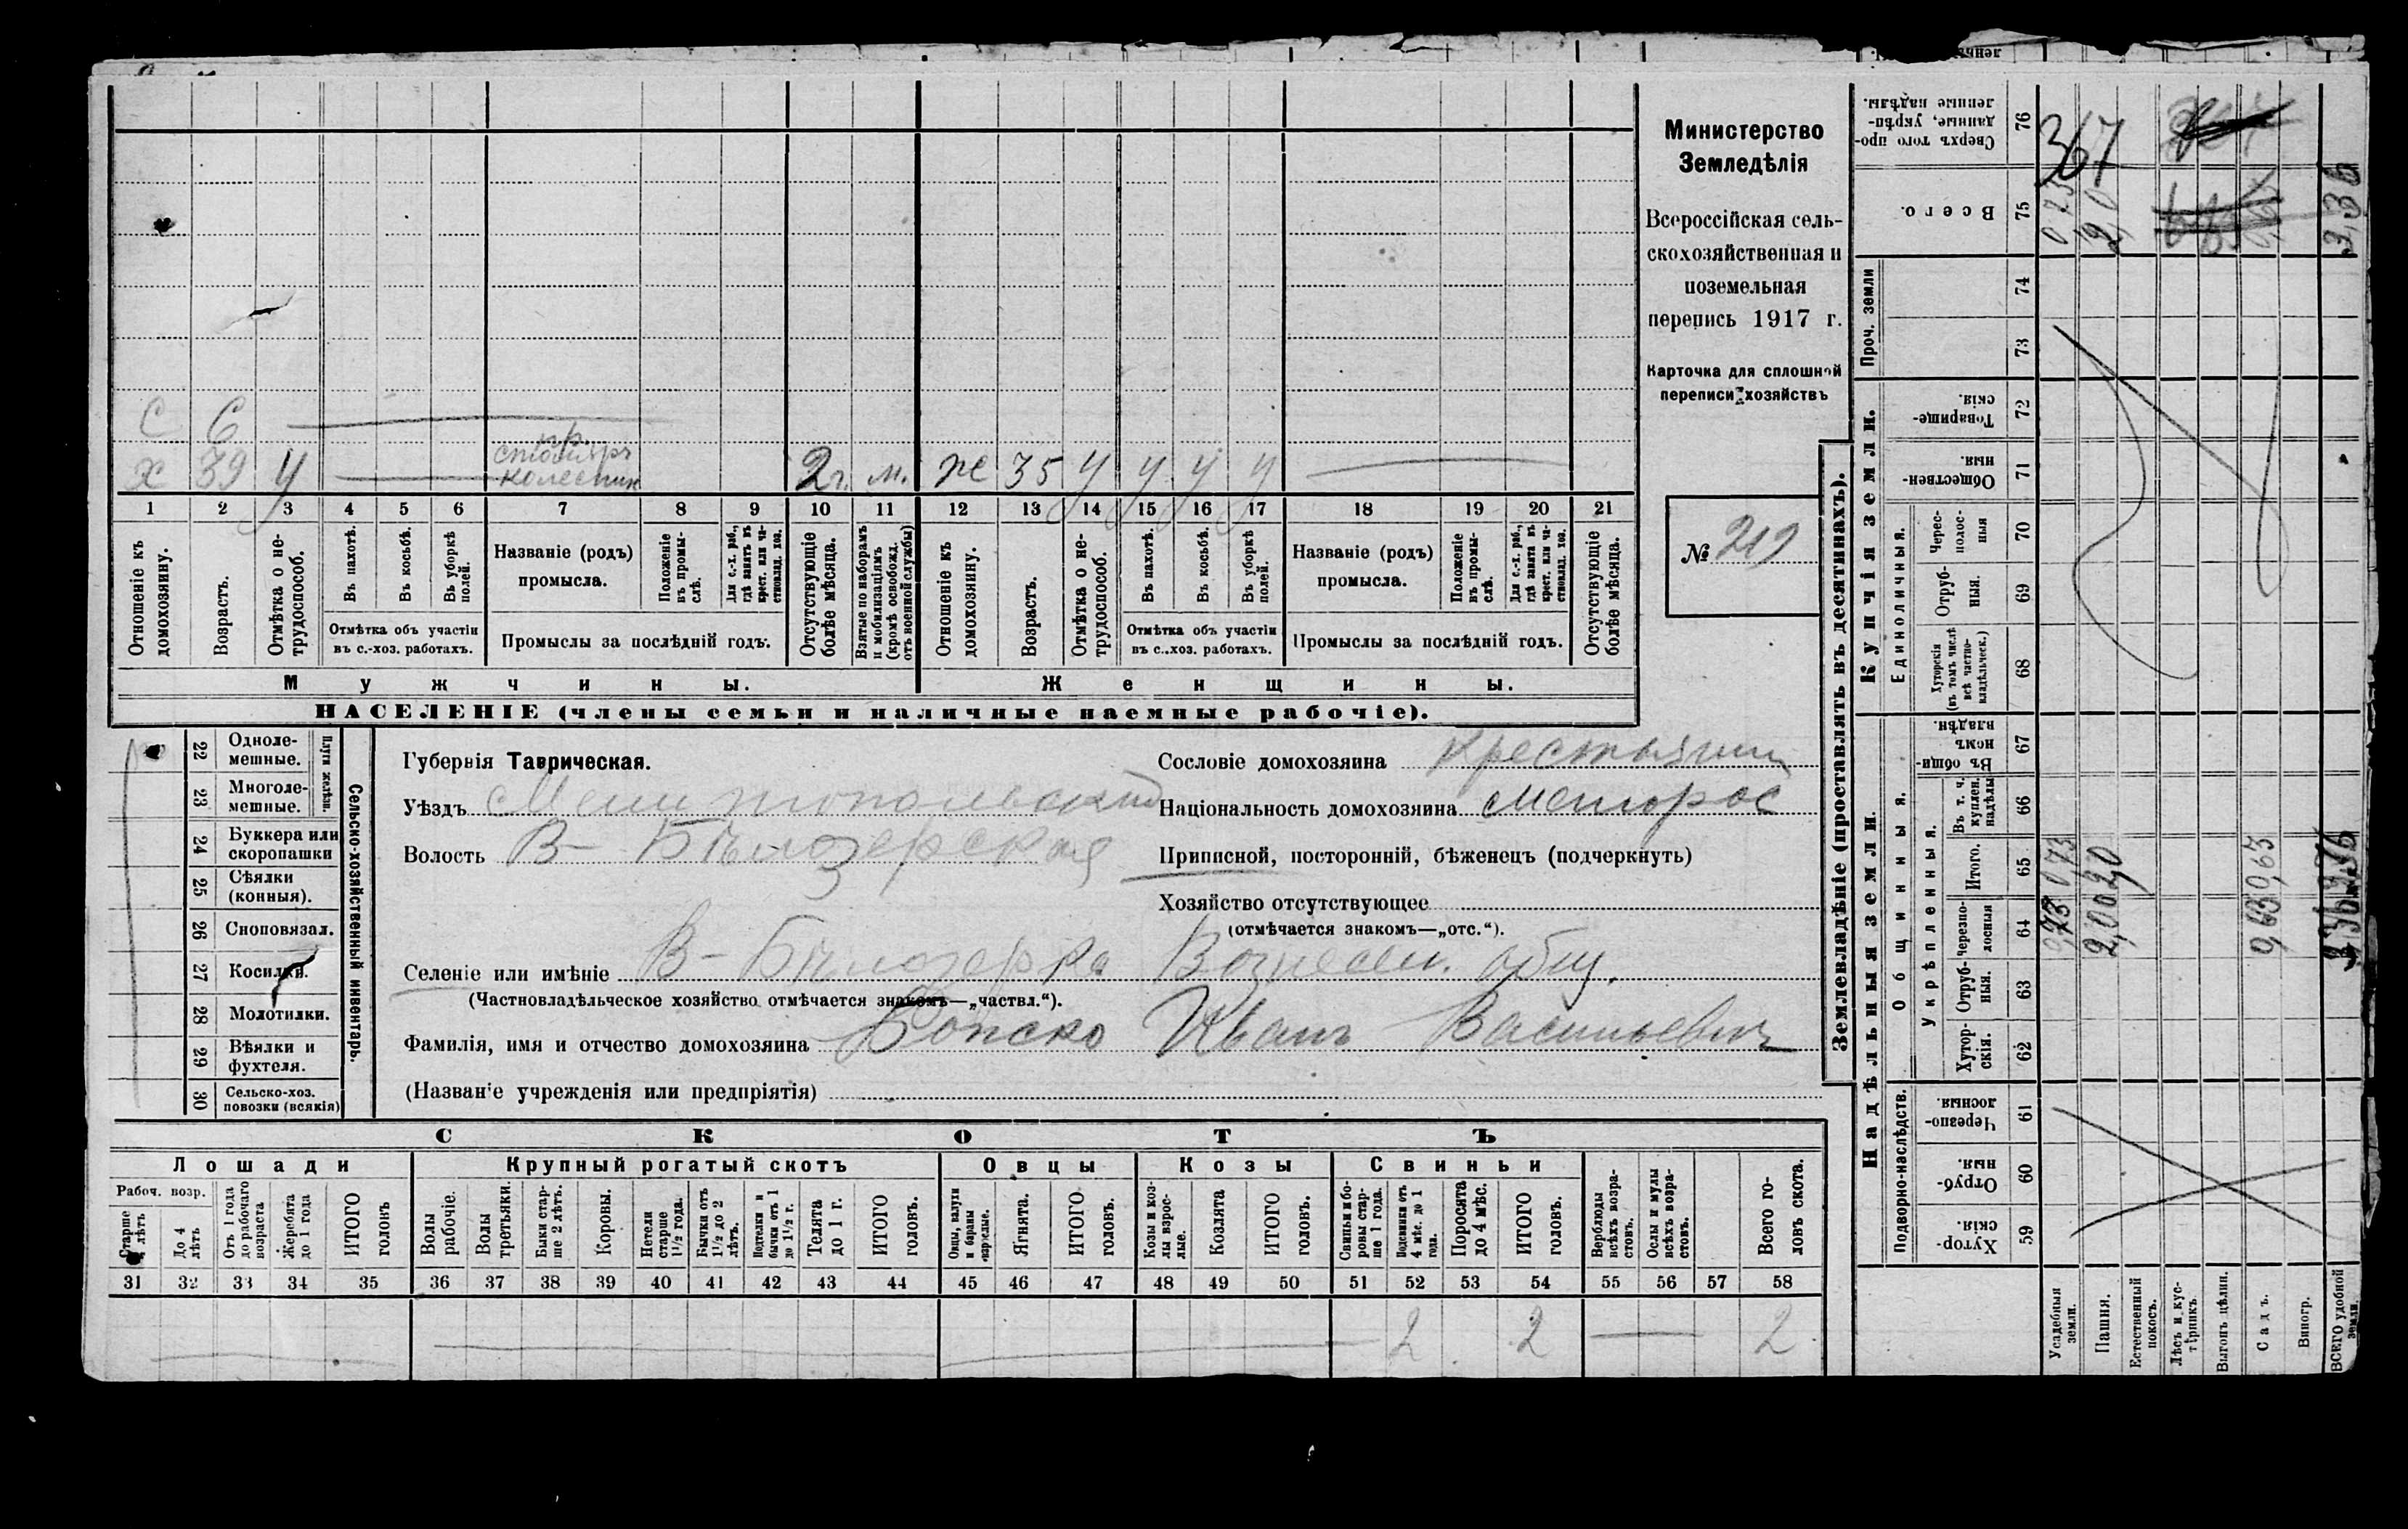 Министерство
Земледѣлія
Всероссійская сель-
скохозяйственная и
поземельная
перепись 1917 г.
Карточка для сплошной
переписи хозяйствъ
№ 219
С 6
пр.
столяръ
х 39 у колесник 2 г. м. ж 35 у у у у
1 2 3 4 5 6 7 8 9 10 11 12 13 14 15 16 17 18 19 20 21
Отношеніе къ домохозяину.
Возрастъ.
Отмѣтка о не-трудоспособ.
Въ пахотѣ.
Въ косьбѣ.
Въ уборкѣ полей.
Отмѣтка объ участіи
въ с.-хоз. работахъ.
Названіе (родъ)
промысла.
Положеніе въ промы-слѣ.
Для с.-х. раб., гдѣ занятъ въ крест. или ча-стновлад. хоз.
Промыслы за послѣдній годъ.
Отсутствующіе болѣе мѣсяца.
Взятые по наборамъ и мобилизаціямъ (кромѣ освобожд. отъ военной службы)
Отношеніе къ домохозяину.
Возрастъ.
Отмѣтка о не-трудоспособ.
Въ пахотѣ.
Въ косьбѣ.
Въ уборкѣ полей.
Отмѣтка объ участіи
въ с.-хоз. работахъ.
Названіе (родъ)
промысла.
Положеніе въ промы-слѣ.
Для с.-х. раб., гдѣ занятъ въ крест. или ча-стновлад. хоз.
Промыслы за послѣдній годъ.
Отсутствующіе болѣе мѣсяца.
Мужчины. Женщины.
НАСЕЛЕНІЕ (члены семьи и наличные наемные рабочіе).
Сельско-хозяйственный инвентарь.
Плуги желѣзн.
22 Одноле-мешные.
23 Многоле-мешные.
24 Буккера или скоропашки
25 Сѣялки (конныя).
26 Сноповязал.
27 Косилки.
28 Молотилки.
29 Вѣялки и фухтеля.
30 Сельско-хоз. повозки (всякія)
Губернія Таврическая.
Уѣздъ Мелитопольский
Волость В-Бѣлозерская
Селеніе или имѣніе В-Бѣлозерка Вознесен. общ.
(Частновладѣльческое хозяйство отмѣчается знакомъ—„частвл.“).
Фамилія, имя и отчество домохозяина Иванъ Васильевич
(Названіе учрежденія или предпріятія)
Сословіе домохозяина крестьянин
Національность домохозяина малорос
Приписной, посторонній, бѣженецъ (подчеркнуть)
Хозяйство отсутствующее
(отмѣчается знакомъ—„отс.“).
СКОТЪ
Лошади Крупный рогатый скотъ Овцы Козы Свиньи
Рабоч. возр.
Старше лѣтъ
До 4 лѣтъ
Отъ 1 года до рабочаго возраста
Жеребята до 1 года
ИТОГО головъ
Волы рабочіе.
Волы третьяки.
Быки стар-ше 2 лѣтъ.
Коровы.
Нетели старше 1½ года.
Бычки отъ 1½ до 2 лѣтъ.
Подтелки и бычки отъ 1 до 1½ г.
Телята до 1 г.
ИТОГО головъ.
Овцы, валухи и бараны взрослые.
Ягнята.
ИТОГО головъ.
Козы и коз-лы взрос-лые.
Козлята
ИТОГО головъ.
Свиньи и бо-ровы стар-ше 1 года.
Подсвинки отъ 4 мѣс. до 1 года.
Поросята до 4 мѣс.
ИТОГО головъ.
Верблюды всѣхъ возра-стовъ.
Ослы и мулы всѣхъ возра-стовъ.
Всего го-ловъ скота.
31 32 33 34 35 36 37 38 39 40 41 42 43 44 45 46 47 48 49 50 51 52 53 54 55 56 57 58
2 2 2
Землевладѣніе (проставлять въ десятинахъ).
Надѣльныя земли. Купчія земли. Проч. земли
Подворно-наслѣдств.
Общинныя.
Укрѣпленныя.
Единоличныя.
59 Хутор-скія.
60 Отруб-ныя.
61 Черезпо-лосныя.
62 Хутор-скія.
63 Отруб-ныя.
64 Черезпо-лосныя
65 Итого.
66 Въ т. ч. куплен. надѣлы
67 Въ общи-номъ владѣн.
68 Хуторскія (въ томъ числѣ всѣ частно-владѣльческ.)
69 Отруб-ныя.
70 Черес-полос-ныя
71 Обществен-ныя.
72 Товарище-скія.
73
74
75 Всего.
76 Сверхъ того про-данные, укрѣп-ленные надѣлы.
Усадебныя земли. 0,73 0,73
Пашня. 2,00 2,0 2,0
Естественный покосъ.
Лѣсъ и кус-тарникъ
Выгонъ цѣлин.
Садъ. 0,63 0,63
Виногр.
ВСЕГО удобной земли. 3,36 3,36 3,36
367